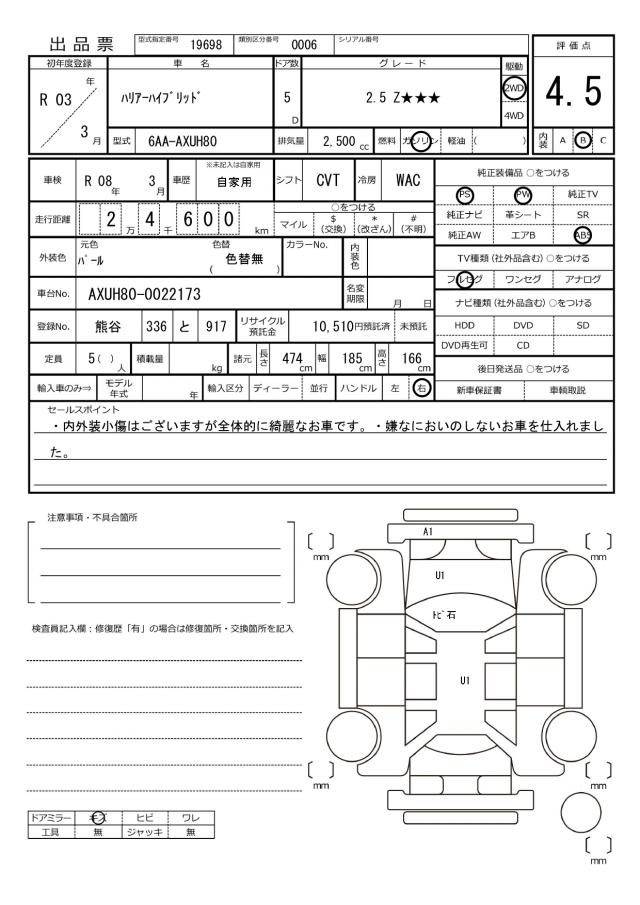 出品票 型式指定番号 19698 類別区分番号 0006 シリアル番号
評価点
4.5
内装 A B C
初年度登録 車名 ドア数 グレード 駆動
R 03 年 3 月 ハリアーハイブリッド 5 D 2.5 Z★★★ 2WD 4WD
型式 6AA-AXUH80 排気量 2,500 cc 燃料 ガソリン 軽油 ( )
車検 R 08 年 3 月 車歴 ※未記入は自家用 自家用 シフト CVT 冷房 WAC
純正装備品 ○をつける
PS PW 純正TV
純正ナビ 革シート SR
純正AW エアB ABS
走行距離 2 万 4 千 6 0 0 km
○をつける
マイル $(交換) *(改ざん) #(不明)
外装色 元色 パール 色替 ( 色替無 ) カラーNo. 内装色
TV種類(社外品含む)○をつける
フルセグ ワンセグ アナログ
車台No. AXUH80-0022173 名変期限 月 日
ナビ種類(社外品含む)○をつける
HDD DVD SD
DVD再生可 CD
登録No. 熊谷 336 と 917 リサイクル預託金 10,510円預託済 未預託
定員 5( ) 人 積載量 kg 諸元 長さ 474 cm 幅 185 cm 高さ 166 cm
後日発送品 ○をつける
新車保証書 車輌取説
輸入車のみ⇒ モデル年式 年 輸入区分 ディーラー 並行 ハンドル 左 右
セールスポイント
・内外装小傷はございますが全体的に綺麗なお車です。・嫌なにおいのしないお車を仕入れまし
た。
注意事項・不具合箇所
検査員記入欄:修復歴「有」の場合は修復箇所・交換箇所を記入
ドアミラー キズ ヒビ ワレ
工具 無 ジャッキ 無
A1
U1
トビ石
U1
mm
mm
mm
mm
mm